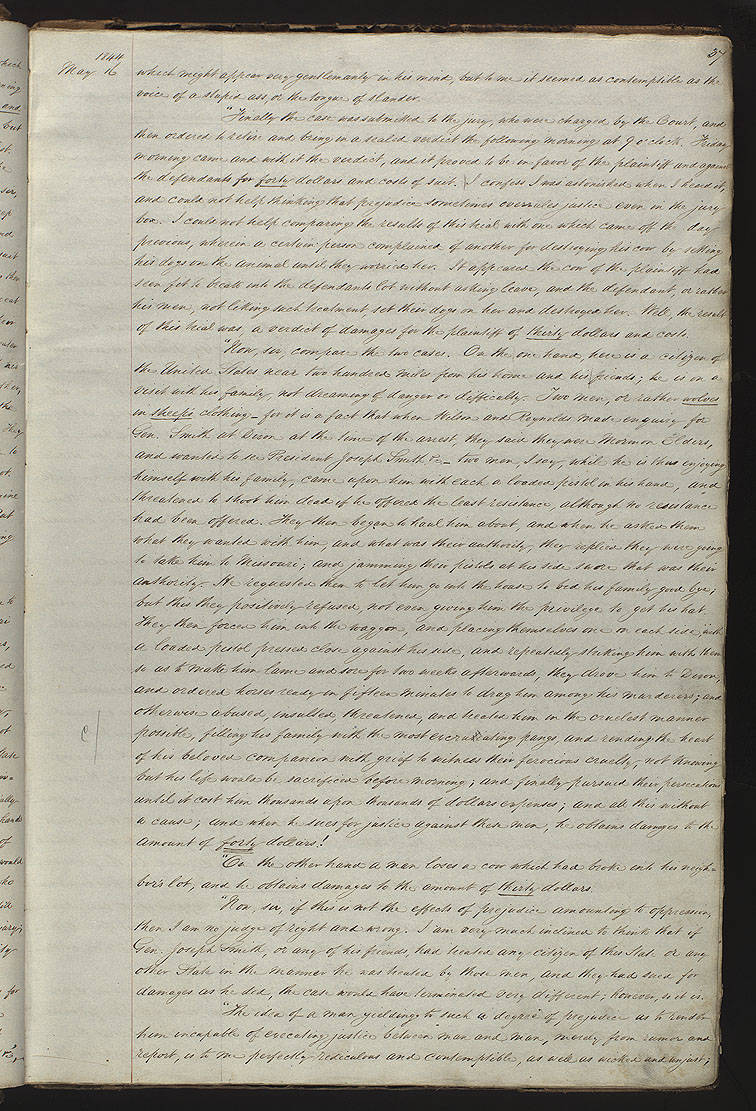 37
1844
May 16
which might appear very gentlemanly in his mind, but to me it seemed as contemptible as the
voice of a stupid ass, or the tongue of slander.
"Finally the case was submitted to the jury, who were charged by the Court, and
then ordered to retire and bring in a sealed verdict the following morning at 9 o'clock. Friday
morning came and with it the verdict, and it proved to be in favor of the plaintiff and against
the defendants for forty dollars and costs of suit. I confess I was astonished when I heard it,
and could not help thinking that prejudice sometimes overrules justice even in the jury
box. I could not help comparing the results of this trial with one which came off the day
previous, wherein a certain person complained of another for destroying his cow by setting
his dogs on the animal until they worried her. It appears the cow of the plaintiff had
seen fit to break into the defendants lot without asking leave, and the defendant, or rather
his men, not liking such treatment set their dogs on her and destroyed her. Well, the result
of this trial was, a verdict of damages for the plaintiff of thirty dollars and costs.
"Now, sir, compare the two cases. On the one hand, here is a citizen of
the United States near two hundred miles from his home and his friends; he is on a
visit with his family, not dreaming of danger or difficulty. Two men, or rather wolves
in sheeps clothing – for it is a fact that when Wilson and Reynolds made enquiry for
Gen. Smith at Dixon at the time of the arrest, they said they were Mormon Elders,
and wanted to see President Joseph Smith &c – two men, I say, while he is thus enjoying
himself with his family, came upon him with each a loaded pistol in his hand, and
threatened to shoot him dead if he offered the least resistance, although no resistance
had been offered. They then began to haul him about, and when he asked them
what they wanted with him, and what was their authority, they replied they were going
to take him to Missouri; and jamming their pistols at his side swore that was their
authority. He requested them to let him go into the house to bid his family good bye;
but this they positively refused, not even giving him the privilege to get his hat.
They then forced him into the waggon, and placing themselves one on each side with
a loaded pistol pressed close against his side, and repeatedly striking him with them
so as to make him lame and sore for two weeks afterwards, they drove him to Dixon,
and ordered horses ready in fifteen minutes to drag him among his murderers; and
otherwise abused, insulted, threatened, and treated him in the cruelest manner
possible, filling his family with the most excruciating pangs, and rending the heart
of his beloved companion with grief to witness their ferocious cruelty, not knowing
but his life would be sacrificed before morning; and finally pursued their persecutions
until it cost him thousands upon thousands of dollars expenses; and all this without
a cause; and when he sues for justice against these men, he obtains damages to the
amount of forty dollars!
"On the other hand a man loses a cow which had broke into his neigh-
bor's lot, and he obtains damages to the amount of thirty dollars.
"Now, sir, if this is not the effects of prejudice amounting to oppression,
then I am no judge of right and wrong. I am very much inclined to think that if
Gen. Joseph Smith, or any of his friends, had treated any citizen of this State or any
other State in the manner he was treated by those men, and they had sued for
damages as he did, the case would have terminated very different; however, so it is.
"The idea of a man yielding to such a degree of prejudice as to render
him incapable of executing justice between man and man, merely from rumor and
report, is to me perfectly rediculous and contemptible, as well as wicked and unjust;